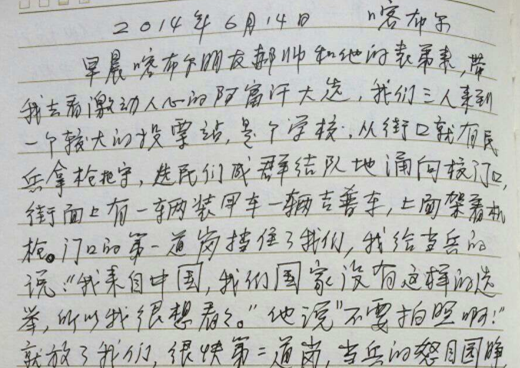 2014年6月14日 喀布尔
早晨喀布尔朋友郝帅和他的表弟来,带
我去看激动人心的阿富汗大选,我们三人来到
一个较大的投票站,是个学校.从街口就有民
兵拿枪把守,选民们成群结队地涌向校门口,
街面上有一辆装甲车一辆吉普车,上面架着机
枪。门口的第一道岗挡住了我们,我给当兵的
说:"我来自中国,我们国家没有这样的选
举,所以我很想看看。"他说"不要拍照啊!"
就放了我们,很快第二道岗,当兵的怒目圆睁